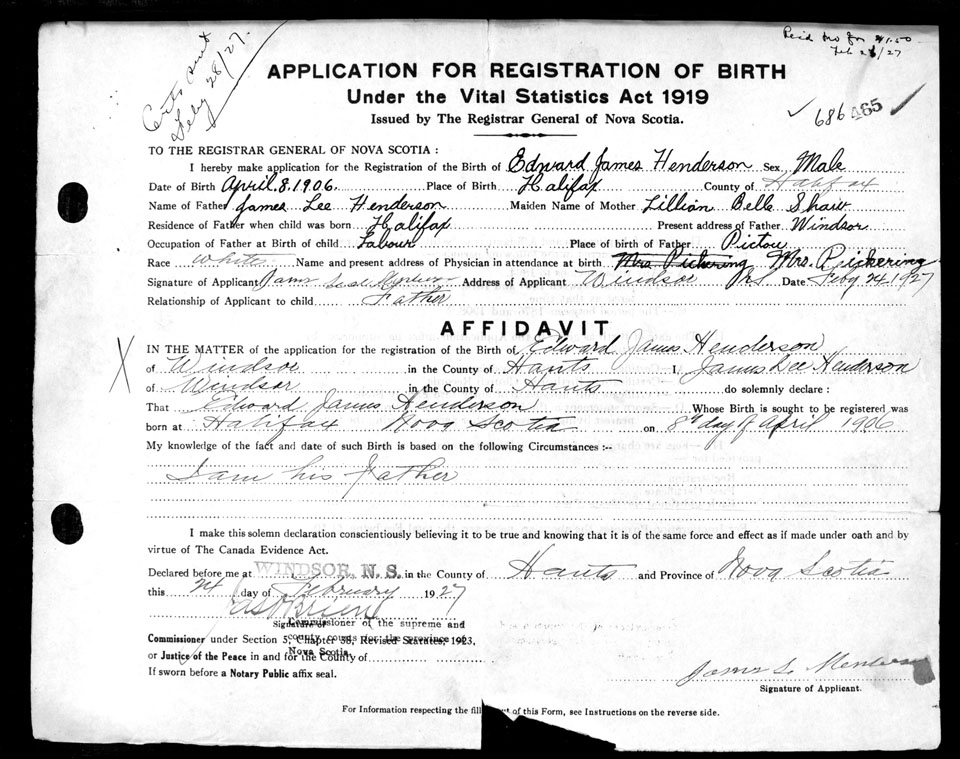 Certs sent
Feby 28/27
$1.50
Feb 28/27
APPLICATION FOR REGISTRATION OF BIRTH
Under the Vital Statistics Act 1919
Issued by The Registrar General of Nova Scotia.
686 465
TO THE REGISTRAR GENERAL OF NOVA SCOTIA :
I hereby make application for the Registration of the Birth of Edward James Henderson Sex Male
Date of Birth April. 8. 1906. Place of Birth Halifax County of Halifax
Name of Father James Lee Henderson Maiden Name of Mother Lillian Belle Shaw
Residence of Father when child was born Halifax Present address of Father Windsor
Occupation of Father at Birth of child Labour Place of birth of Father Pictou
Race White Name and present address of Physician in attendance at birth Mrs Pickering Mrs. Pickering
Signature of Applicant James Address of Applicant Windsor Date Feby 24 1927
Relationship of Applicant to child Father
AFFIDAVIT
X
IN THE MATTER of the application for the registration of the Birth of Edward James Henderson
of Windsor in the County of Hants I, James Lee Henderson
of Windsor in the County of Hants do solemnly declare :
That Edward James Henderson Whose Birth is sought to be registered was
born at Halifax Nova Scotia on 8th day of April 1906
My knowledge of the fact and date of such Birth is based on the following Circumstances :--
I am his Father
I make this solemn declaration conscientiously believing it to be true and knowing that it is of the same force and effect as if made under oath and by
virtue of The Canada Evidence Act.
Declared before me at WINDSOR, N. S. in the County of Hants and Province of Nova Scotia
this 24 day of February 1927
O'Brien
Signature of
Commissioner of the supreme and
county courts for the province of
Nova Scotia
Commissioner under Section 5, Chapter 38, Revised Statutes, 1923,
or Justice of the Peace in and for the County of
If sworn before a Notary Public affix seal.
James L
Signature of Applicant.
For Information respecting the fill of this Form, see Instructions on the reverse side.